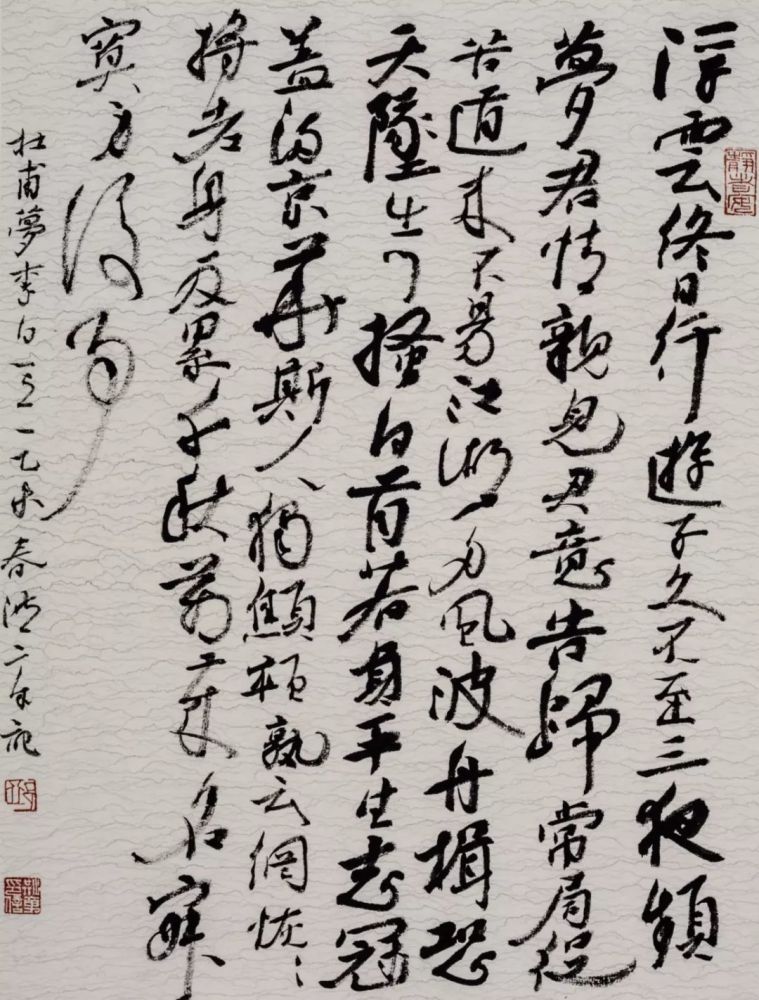 浮雲終日行遊子久不至三夜頻
夢君情親見君意告歸常局促
苦道来不易江湖多風波舟楫恐
失墜出门搔白首若負平生志冠
盖满京華斯人獨顦顇孰云網恢〻
將老身反累千秋萬歲名寂
寞身後事
杜甫夢李白二之一乙未春記